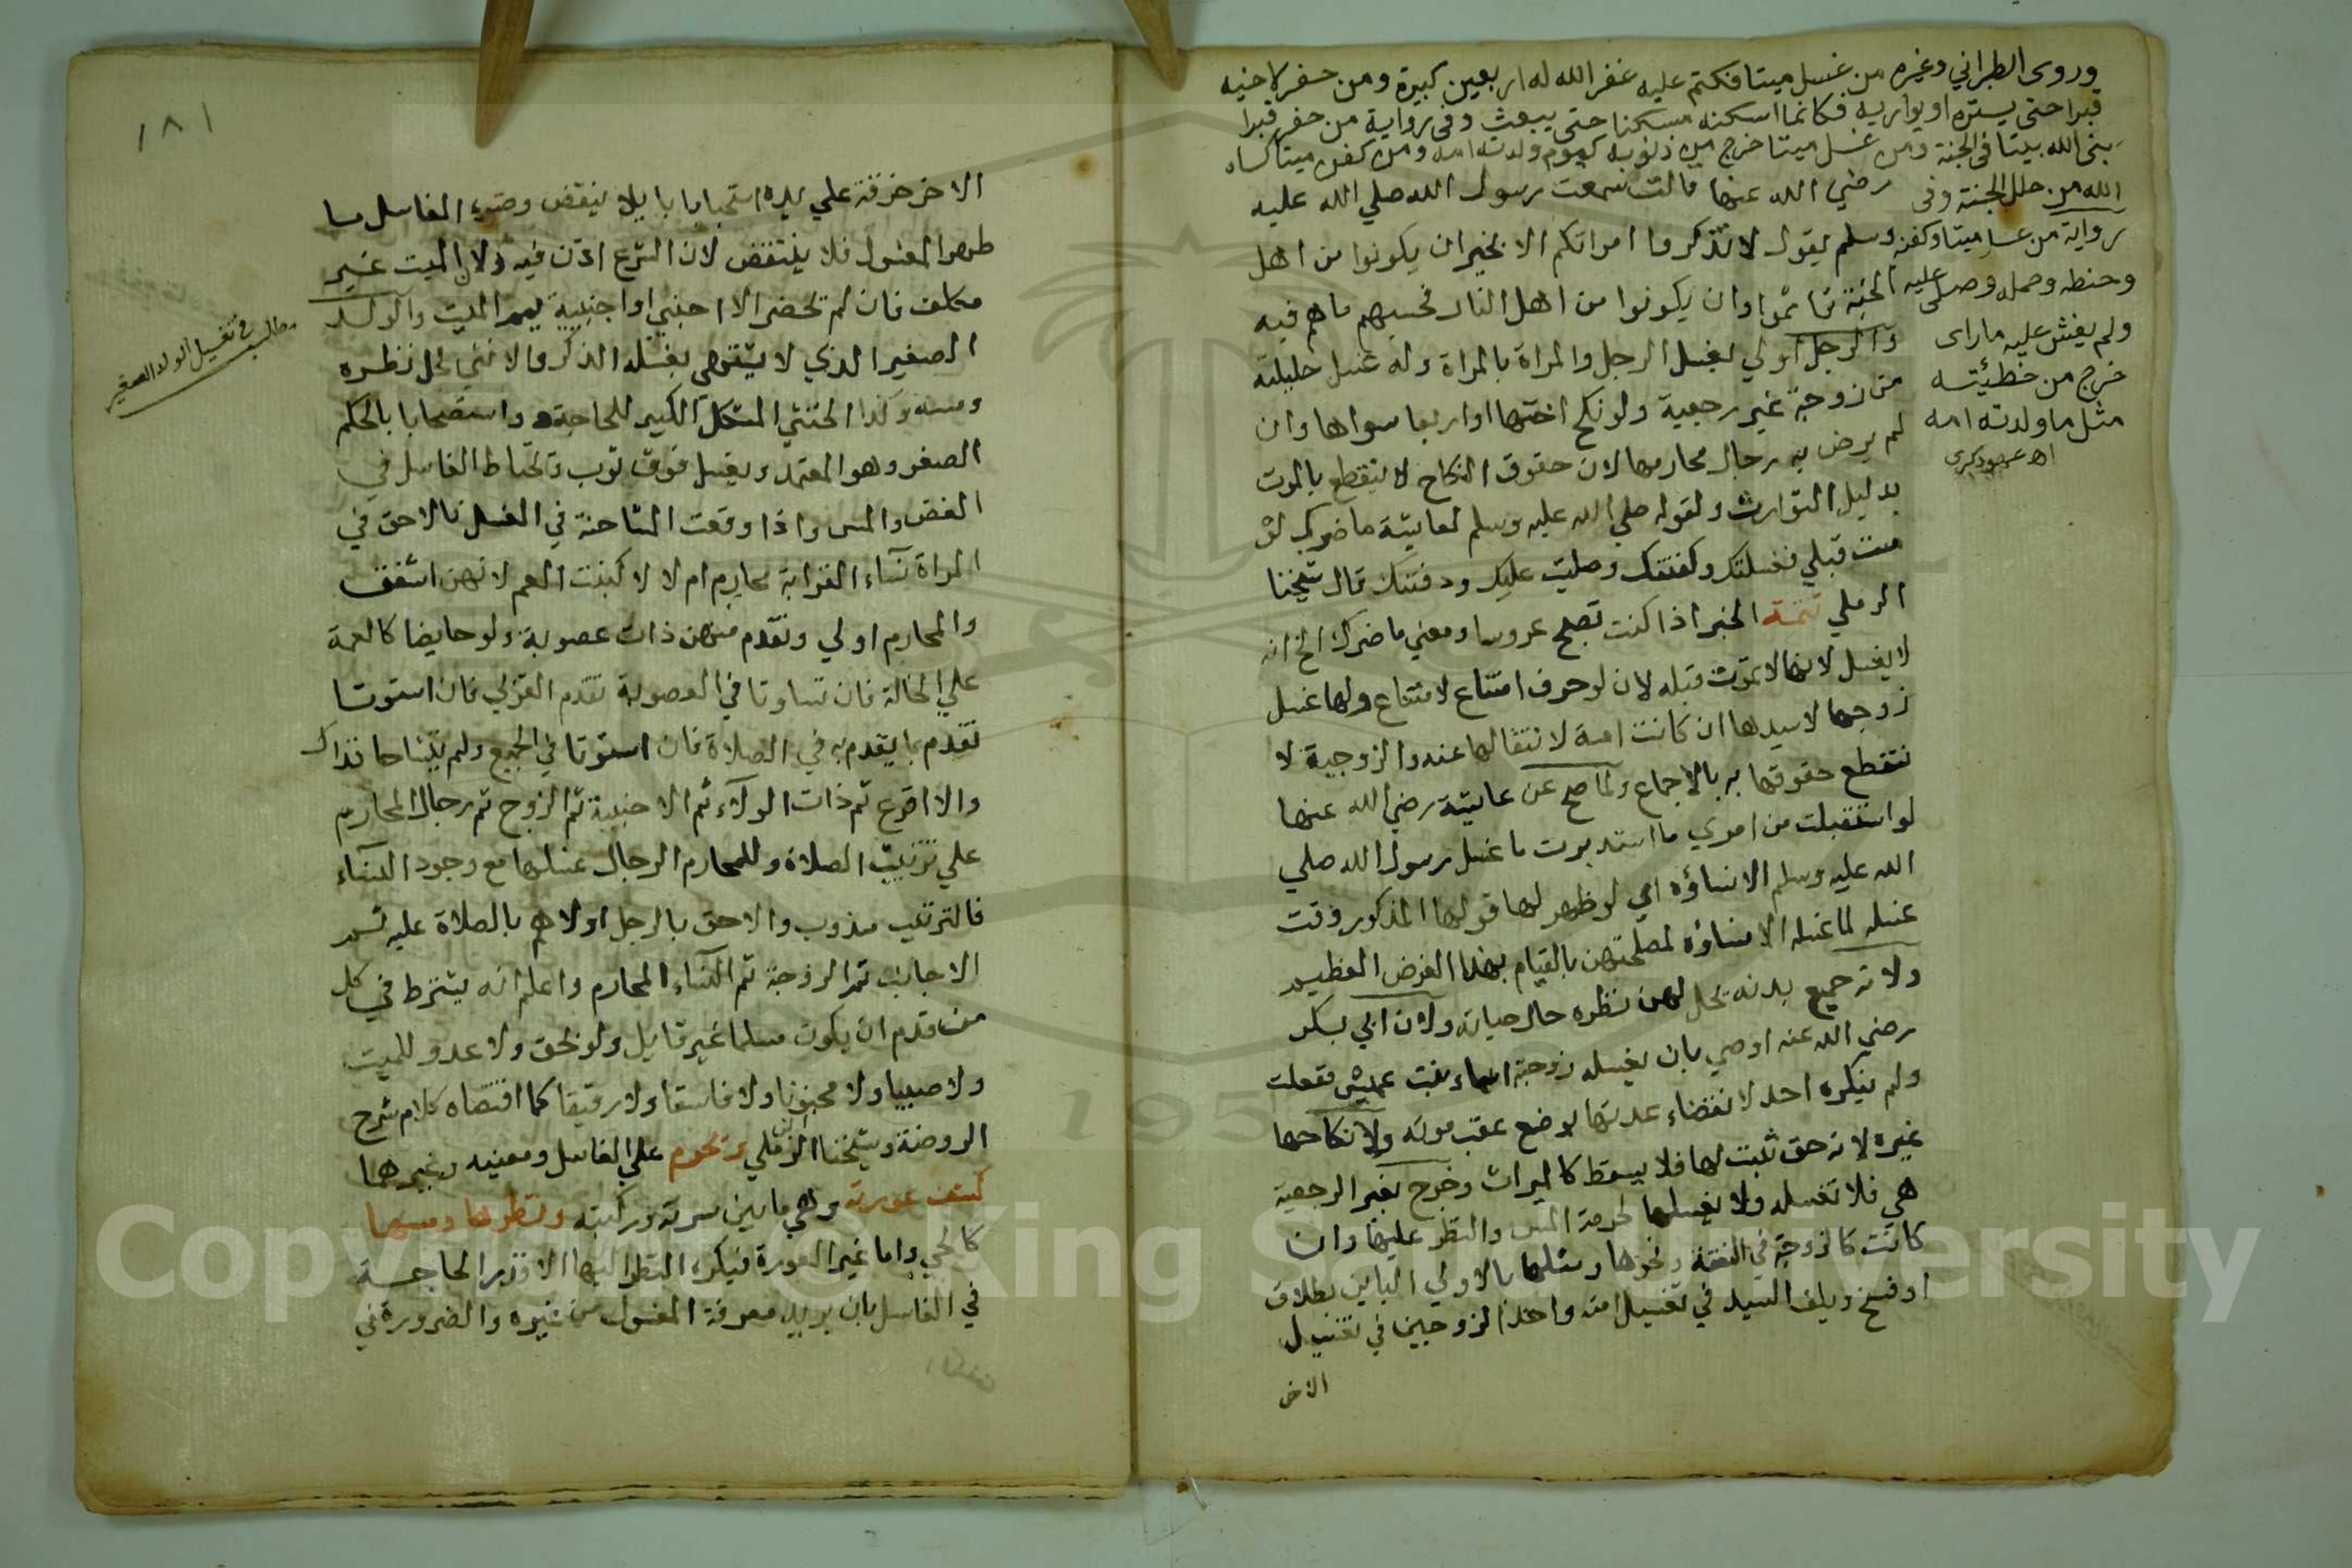 وروى الطبراني وغيره من غسل ميتا فكتم عليه غفر الله له اربعين كبيرة ومن حفر لاخيه
قبرا حتى يستره او يواريه فكانما اسكنه مسكنا حتى يبعث وفى رواية من حفر قبرا
بنى الله بيتا فى الجنة ومن غسل ميتا خرج من ذنوبه كيوم ولدته امه ومن كفن ميتا كساه
الله من حلل الجنة وفى
رواية من غسل ميتا وكفنه
وحنطه وحمله وصلى عليه
ولم يفش عليه ماراى
خرج من خطيئته
مثل ما ولدته امه
اه
رضي الله عنها قالت سمعت رسول الله صلي الله عليه
وسلم يقول لا تذكروا امواتكم الا بخير ان يكونوا من اهل
الجنة تاثموا وان يكونوا من اهل النار فحسبهم ما هم فيه
والرجل اولي بغسل الرجل والمراة بالمراة وله غسل حليلته
من زوجة غير رجعية ولو نكح اختها او اربعا سواها وان
لم يرض به رجال محارمها لان حقوق النكاح لا ينقطع بالموت
بدليل التوارث ولقوله صلي الله عليه وسلم لعايشة ما ضرك لو
مت قبلي فغسلتك وكفنتك وصليت عليك ودفنتك قال شيخنا
الرملي تتمة الخبر اذا كنت تصلح عروسا ومعني ما ضرك الخ انه
لا يغسل لانها لا تموت قبله لان لو حرف امتناع لامتناع ولها غسل
زوجها لا سيدها ان كانت امة لانتقالها عنه والزوجية لا
تنقطع حقوقها به بالاجماع ولما صح عن عايشة رضي الله عنها
لو استقبلت من امري ما استدبرت ما غسل رسول الله صلي
الله عليه وسلم الا نساؤه اي لو ظهر لها قولها المذكور وقت
غسله لما غسله الا نساؤه لمصلحتهن بالقيام بهذا الفرض العظيم
ولانه جميع بدنه يحل لهن نظره حال حياته ولان ابي بكر
رضي الله عنه اوصي بان يغسله زوجته اسماء بنت عميس ففعلت
ولم ينكره احد لا نقضاء عدتها بوضع عقب موته ولا نكاحها
غيره لانه حق ثبت لها فلا يسقط كالميراث وخرج بغير الرجعية
هي فلا تغسله ولا يغسلها لحرمة المس والنظر عليها وان
كانت كالزوجة في النفقة ونحوها ومثلها بالاولي الباين بطلاق
او فسخ ويلف السيد في تغسيل امته واحد الزوجين في تغسيل
الاخر
١٨١
الاخر خرقة علي يده استحبابا ليلا ينتقض وضوء الغاسل اما
طهر المغسول فلا ينتقض لان الشرع اذن فيه ولان الميت غير
مكلف فان لم تحضر الا اجنبي او اجنبية يمم الميت والولد
الصغير الذي لا يشتهي يغسله الذكر والانثي لحل نظره
ومسه وكذا الخنثي المشكل الكبير للحاجة واستصحابا بالحكم
الصغر وهو المعتمد ويغسل فوق ثوب وتحتاط الغاسل في
الغض والمس واذا وقعت المشاحنة في الغسل فالاحق في
المراة نساء القرابة محارم ام لا لا كبنت العم لانهن اشفق
والمحارم اولي وتقدم منهن ذات عصوبة ولو حايضا كالعمة
علي الخالة فان تساوتا في العصوبة تقدم القربي فان استوتا
تقدم بما يقدم به في الصلاة فان استوتا في الجميع ولم يتشاحا فذاك
والا اقرع ثم ذات الولاء ثم الاجنبية ثم الزوج ثم رجال المحارم
علي ترتيب الصلاة وللمحارم الرجال غسلها مع وجود النساء
فالترتيب مندوب والاحق بالرجل اولاهم بالصلاة عليه ثم
الاجانب ثم الزوجة ثم النساء المحارم واعلم انه يشترط في كل
من قدم ان يكون مسلما غير قاتل ولو بحق ولا عدو للميت
ولا صبيا ولا مجنونا ولا فاسقا ولا رقيقا كما اقتضاه كلام شرح
الروضة وشيخنا الرملي وتحرم علي الغاسل ومعينه وغيرهما
كشف عورته وهي ما بين سرته وركبته ونظرها ومسها
كالحي واما غير العورة فيكره النظر اليها الا قدر الحاجة
في الغاسل بان يريد معرفة المغسول من غيره والضرورة في
مطلب في تغسيل الولد الصغير